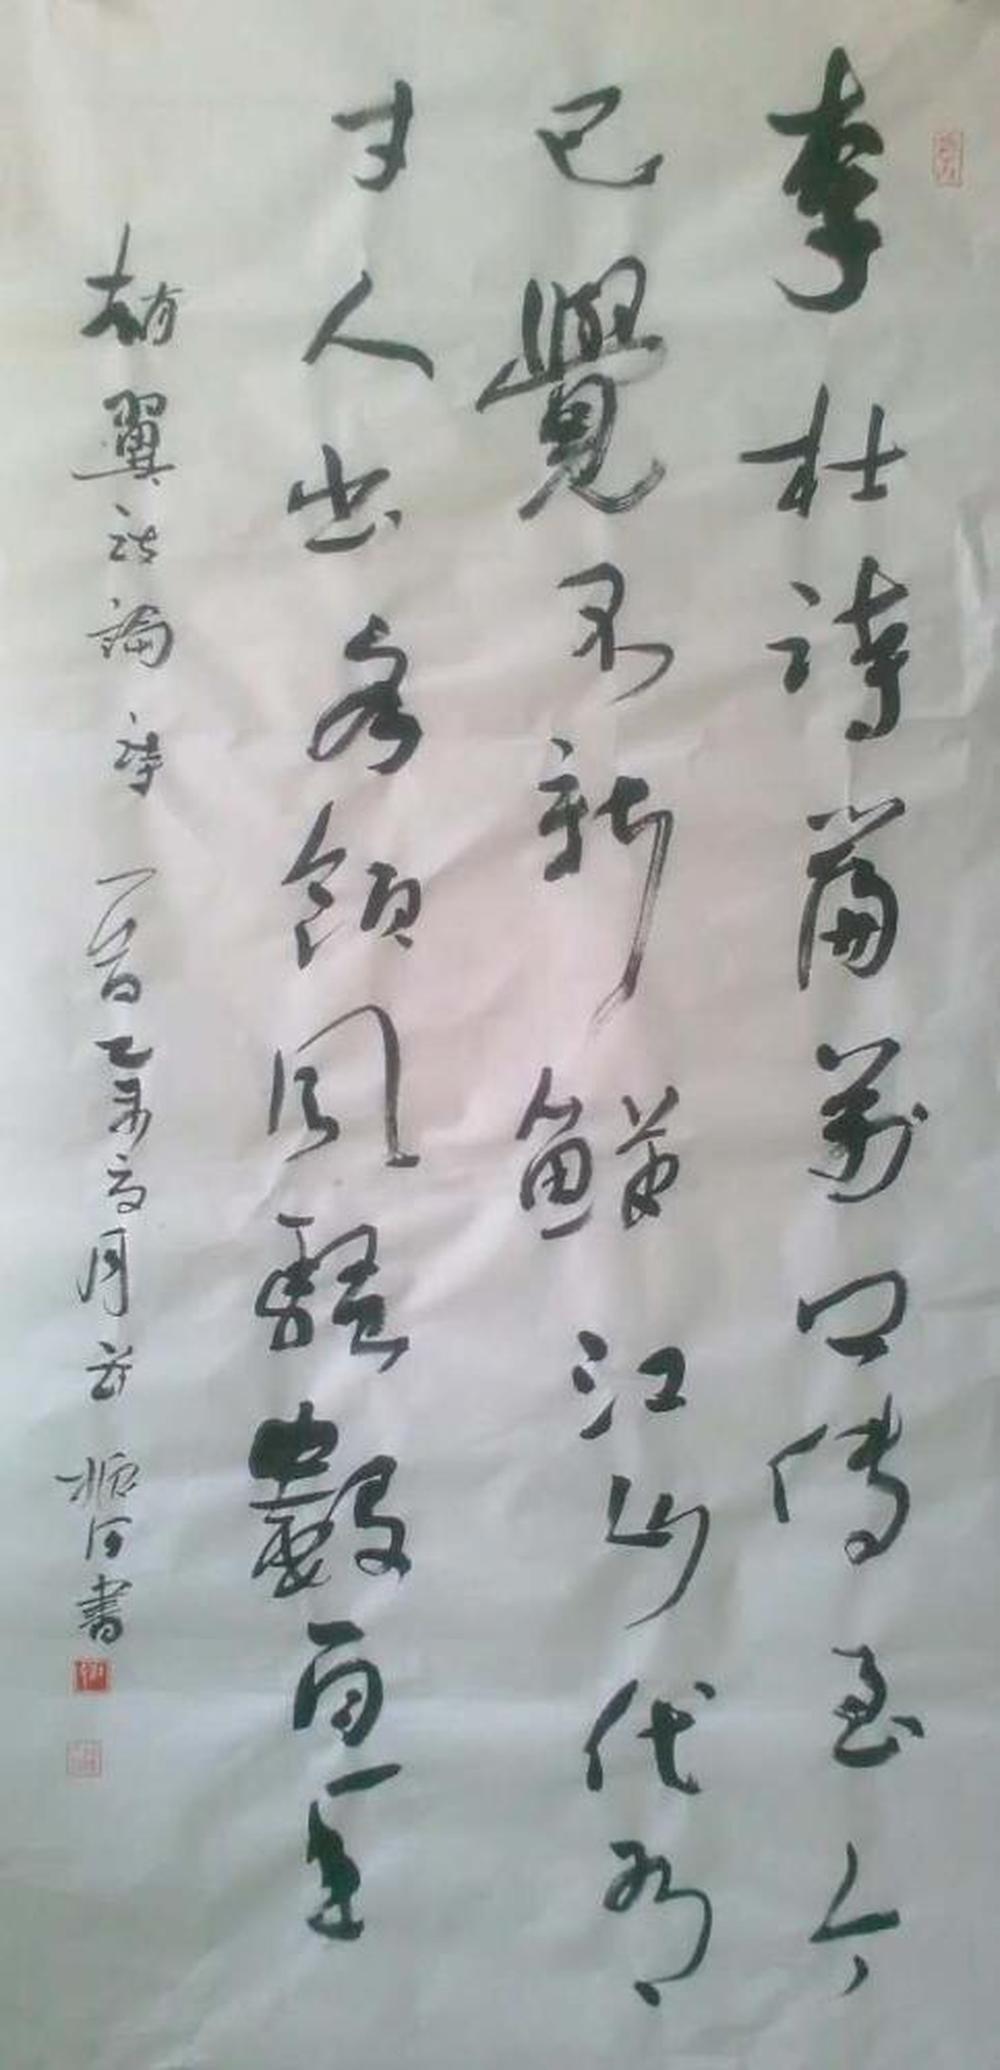 李杜詩篇萬口傳至今
已覺不新鮮江山代有
才人出各領風騷數百年
趙翼論詩一首乙未月書